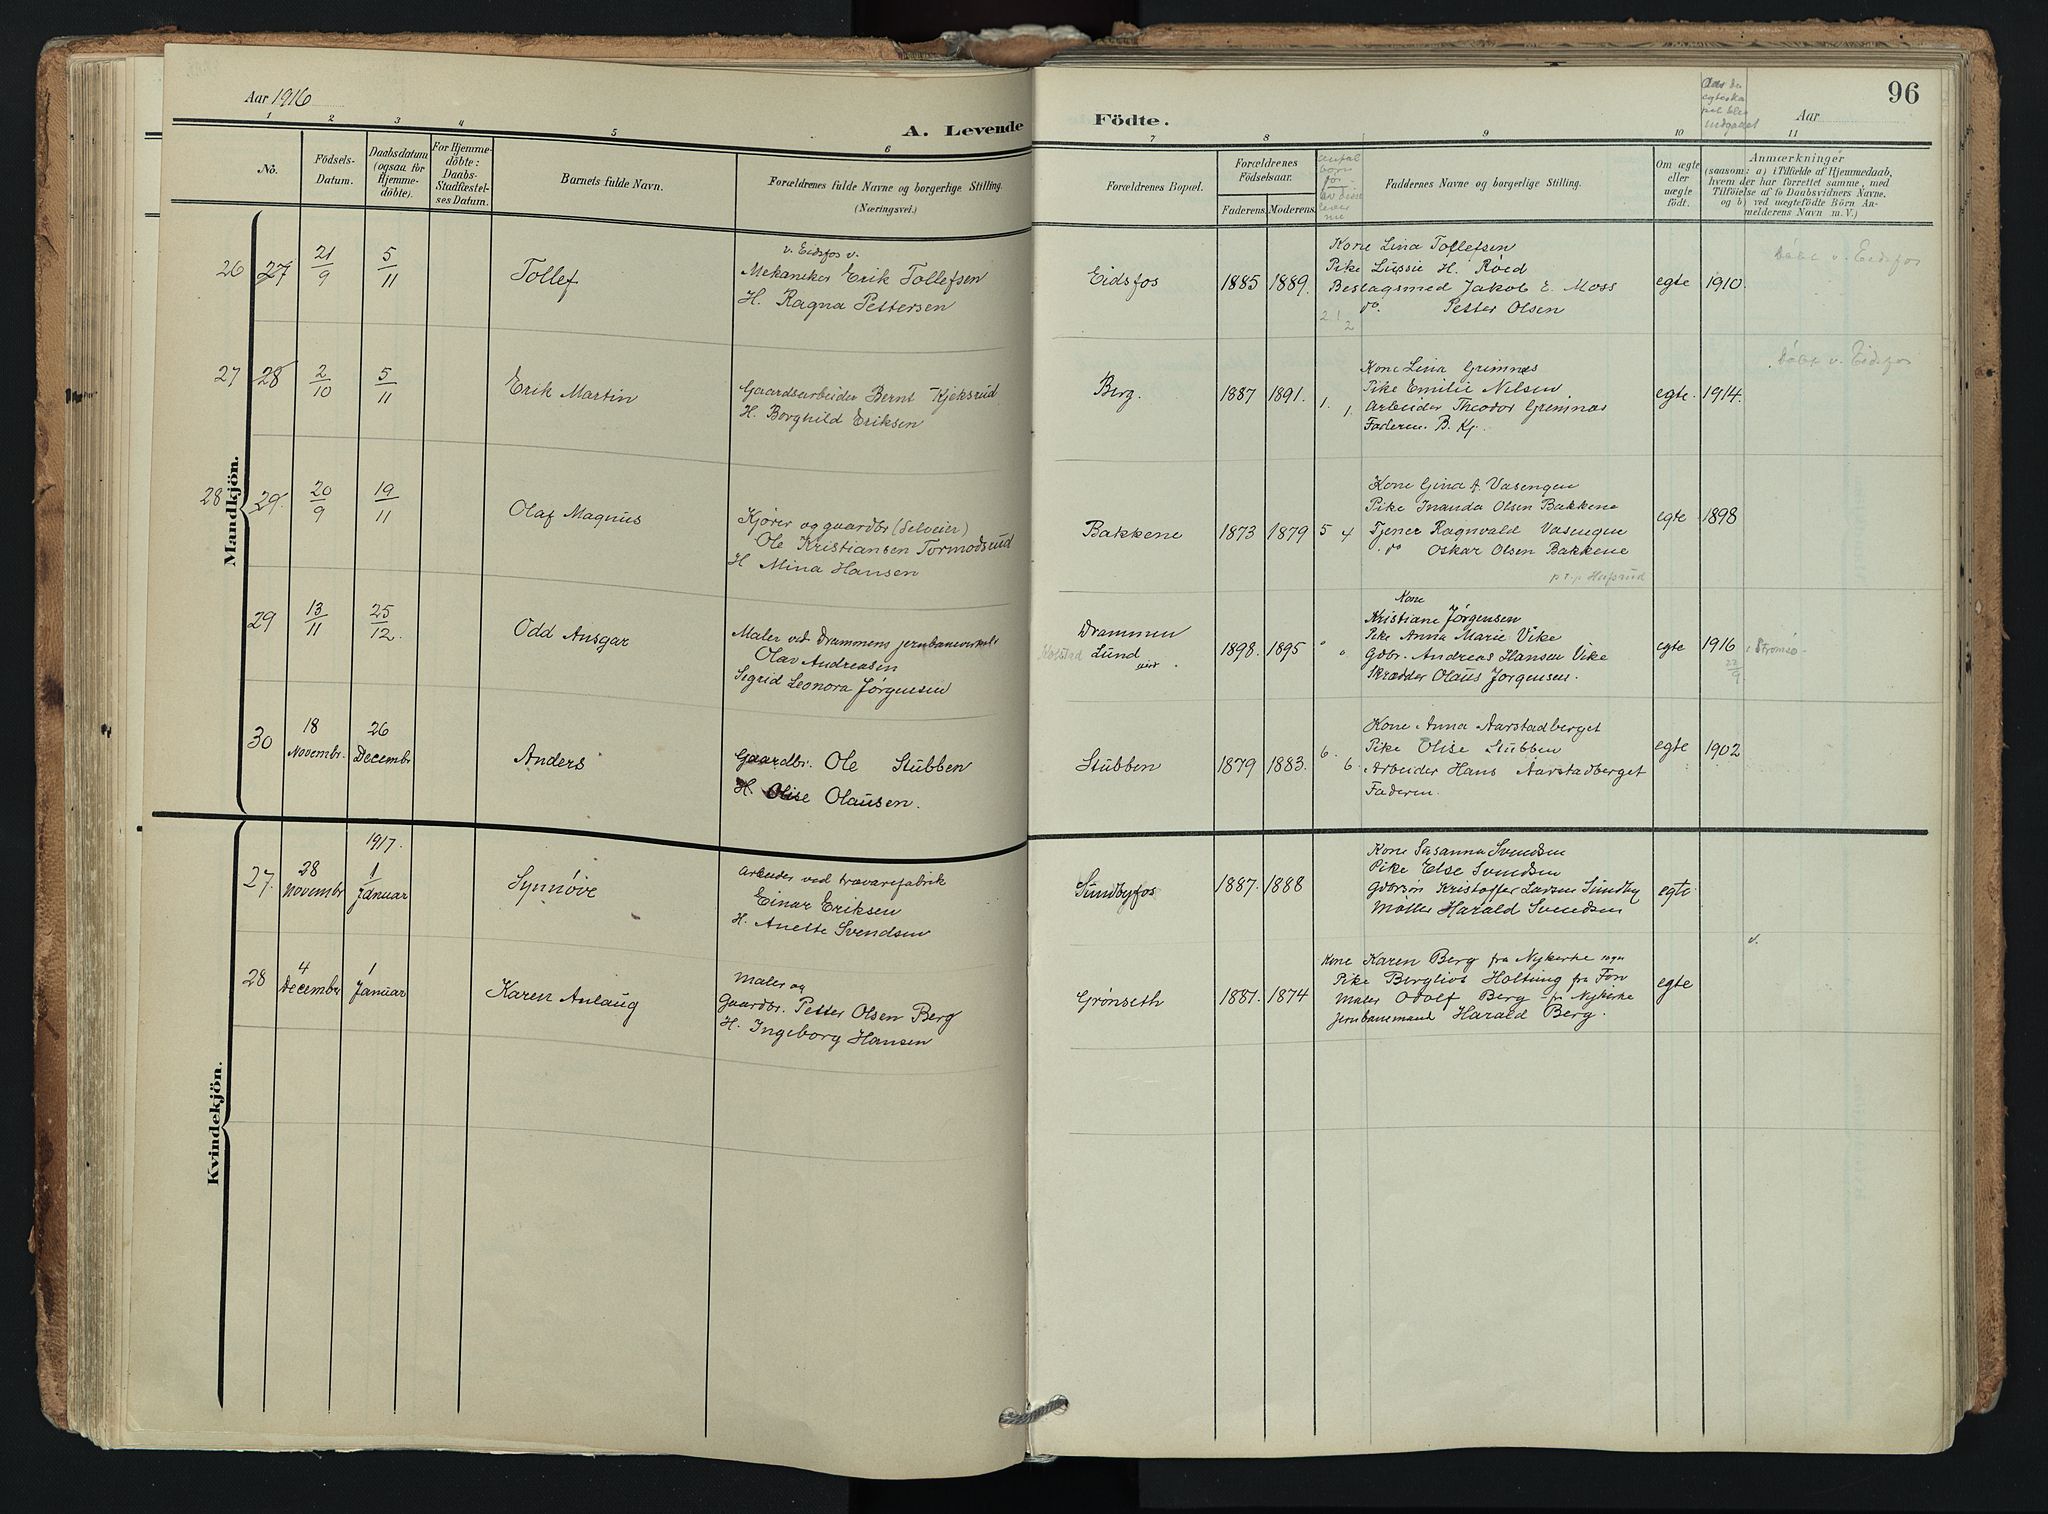 Aar 1916
A. Levende
Födte.
Aar
96
Aar da
egteska
pet blev
indgaaet
1 2 3 4 5 6 7 8 9 10 11
No.
Födsels-
Datum.
Daabsdatum
(ogsaa for
Hjemme-
döbte).
For Hjemme-
döbte:
Daabs-
Stadfæstel-
ses Datum.
Barnets fulde Navn.
Forældrenes fulde Navne og borgerlige Stilling.
(Næringsvei.)
Forældrenes Bopæl.
Forældrenes
Födselsaar.
Faderens. Moderens.
antal
born
før
av disse
lever
nu
Faddernes Navne og borgerlige Stilling.
Om ægte
eller
uægte
født.
Anmærkninger
(saasom: a) i Tilfælde af Hjemmedaab,
hvem der har forrettet samme, med
Tilföielse af to Daabsvidners Navne.
og b) ved uægtefödte Börn An-
melderens Navn m. V.)
Mandkjön.
26 27 21/9 5/11 Tollef
v. Eidsfos v.
Mekaniker Erik Tollefsen
H. Ragna Pettersen
Eidsfos 1885 1889. 2 2
Kone Lina Tollefsen
Pike Lussie H. Røed
Beslagsmed Jakob E. Moss
do. Petter Olsen
egte 1910. døbt v. Eidsfos
27 28 2/10 5/11 Erik Martin
Gaardsarbeider Bernt Kjeksrud
H. Borghild Eriksen
Berg. 1887 1891. 1. 1.
Kone Lina Grimnes
Pike Emilie Nilsen
Arbeider Theodor Grimnæs
Faderen. B. Kj.
egte. 1914. døbt v. Eidsfos
28 29. 20/9 19/11 Olaf Magnus
Kjører og gaardbr (Selveier)
Ole Kristiansen Tormodsrud
H Mina Hansen
Bakkene 1873 1879 5 4
Kone Gina A. Vasengen
Pike Inanda Olsen Bakkene
Tjener Ragnvald Vasengen
do Oskar Olsen Bakkene
egte 1898
29 13/11 25/12. Odd Ansgar
Maler ved Drammens jernbaneverksted
Olav Andreasen
Sigrid Leonora Jørgensen
Drammen
Lund
1898. 1895 " "
Kone
Kristiane Jørgensen
Pike Anna Marie Vike
Gdbr. Andreas Hansen Vike
Skrædder Olaus Jørgensen.
egte 1916 22/9 i Strømsø
30 18 Novembr. 26 Decembr Anders
Gaardbr. Ole Stubben
H. Olise Olausen.
Stubben 1879 1883. 6. 6.
Kone Anna Aarstadberget
Pike Olise Stubben
Arbeider Hans Aarstadberget
Faderen.
egte 1902
Kvindekjön.
1917.
27. 28 Novembr 1 Januar Synnøve
Arbeider ved trævarefabrik
Einar Eriksen
H. Anette Svendsen
Sundbyfos 1887. 1888
Kone Susanna Svendsen
Pike Else Svendsen
Gdbrsøn Kristoffer Larsen Sundby
Møller Harald Svendsen
egte
28 4 December 1 Januar Karen Anlaug
Maler og
Gaardbr. Petter Olsen Berg
H. Ingeborg Hansen
Grønseth 1887. 1874
Kone Karen Berg fra Nykirke sogn
Pike Bergliot Holtung fra Fon
Maler Odolf Berg fr Nykirke
Jernbanemand Harald Berg.
egte
v.